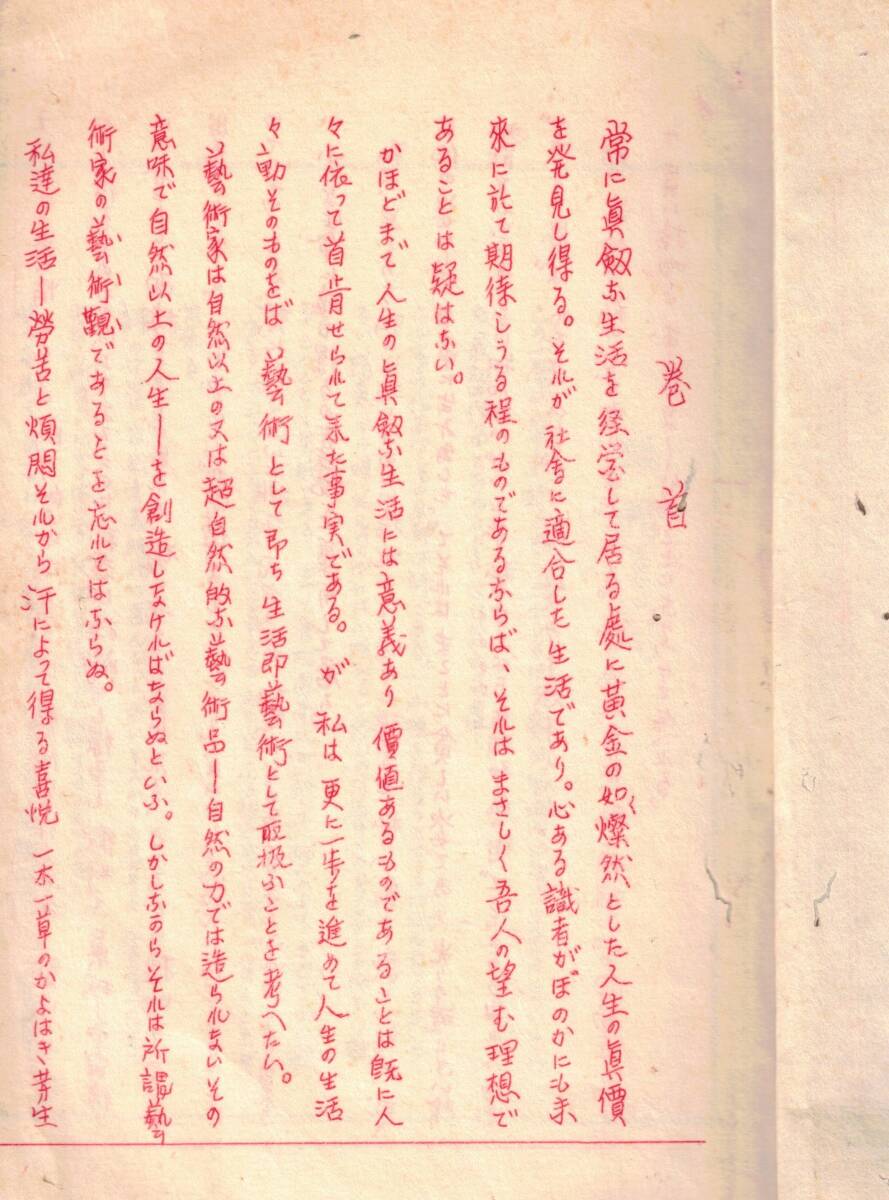 巻首
常に眞剱な生活を経営して居る處に黃金の如く燦然とした人生の眞價
を発見し得る。それが社会に適合した生活であり。心ある識者がほのかにも未
來に於て期待しうる程のものであるならば、それはまさしく吾人の望む理想で
あることは疑はない。
かほどまで人生の眞剱な生活には意義あり價値あるものであることは既に人
々に依って首肯せられて来た事実である。が私は更に一歩を進めて人生の生活
々動そのものをば藝術として即ち生活即藝術として取扱ふことを考へたい。
藝術家は自然以上の又は超自然的な藝術品―自然の力では造られないその
意味で自然以上の人生―を創造しなければならぬといふ。しかしながらそれは所謂藝
術家の藝術観であることを忘れてはならぬ。
私達の生活―勞苦と煩悶それから汗によって得る喜悦一木一草のかよはき芽生